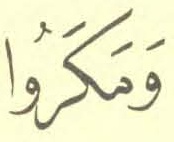 وَمَكَرُوا